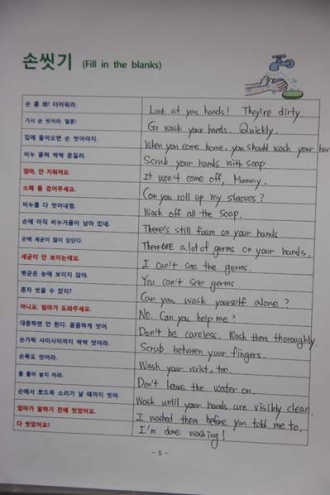 손씻기 (Fill in the blanks)
손 좀 봐! 더러워라.
Look at you hands! They're dirty.
가서 손 씻어라. 얼른!
Go wash your hands. Quickly.
집에 들어오면 손 씻어야지.
When you come home, you should wash your han
비누 묻혀 싹싹 문질러.
Scrub your hands with soap
엄마, 안 지워져요.
It won't come off, Mommy.
소매 좀 걷어주세요.
Can you roll up my sleeves?
비누를 다 씻어내렴.
Wash off all the Soap.
손에 아직 비누거품이 남아 있네.
There's still foam on your hands.
손에 세균이 많이 있단다.
There are a lot of germs on your hands.
세균이 안 보이는데요.
I can't see the germs.
병균은 눈에 보이지 않아.
You can't see germs
혼자 씻을 수 있니?
Can you wash yourself alone?
아니요. 엄마가 도와주세요.
No. Can you help me?
대충하면 안 된다. 꼼꼼하게 씻어.
Don't be careless. Wash them thoroughly.
손가락 사이사이까지 싹싹 씻어라.
Scrub between your fingers.
손목도 씻어라.
Wash your wrist, too.
물 틀어 놓지 마라.
Don't leave the water on.
손에서 뽀드득 소리가 날 때까지 씻어.
Wash until your hands are visibly clean.
엄마가 말하기 전에 씻었어요.
I washed them before you told me to.
다 씻었어요!
I'm done washing!
- 5 -